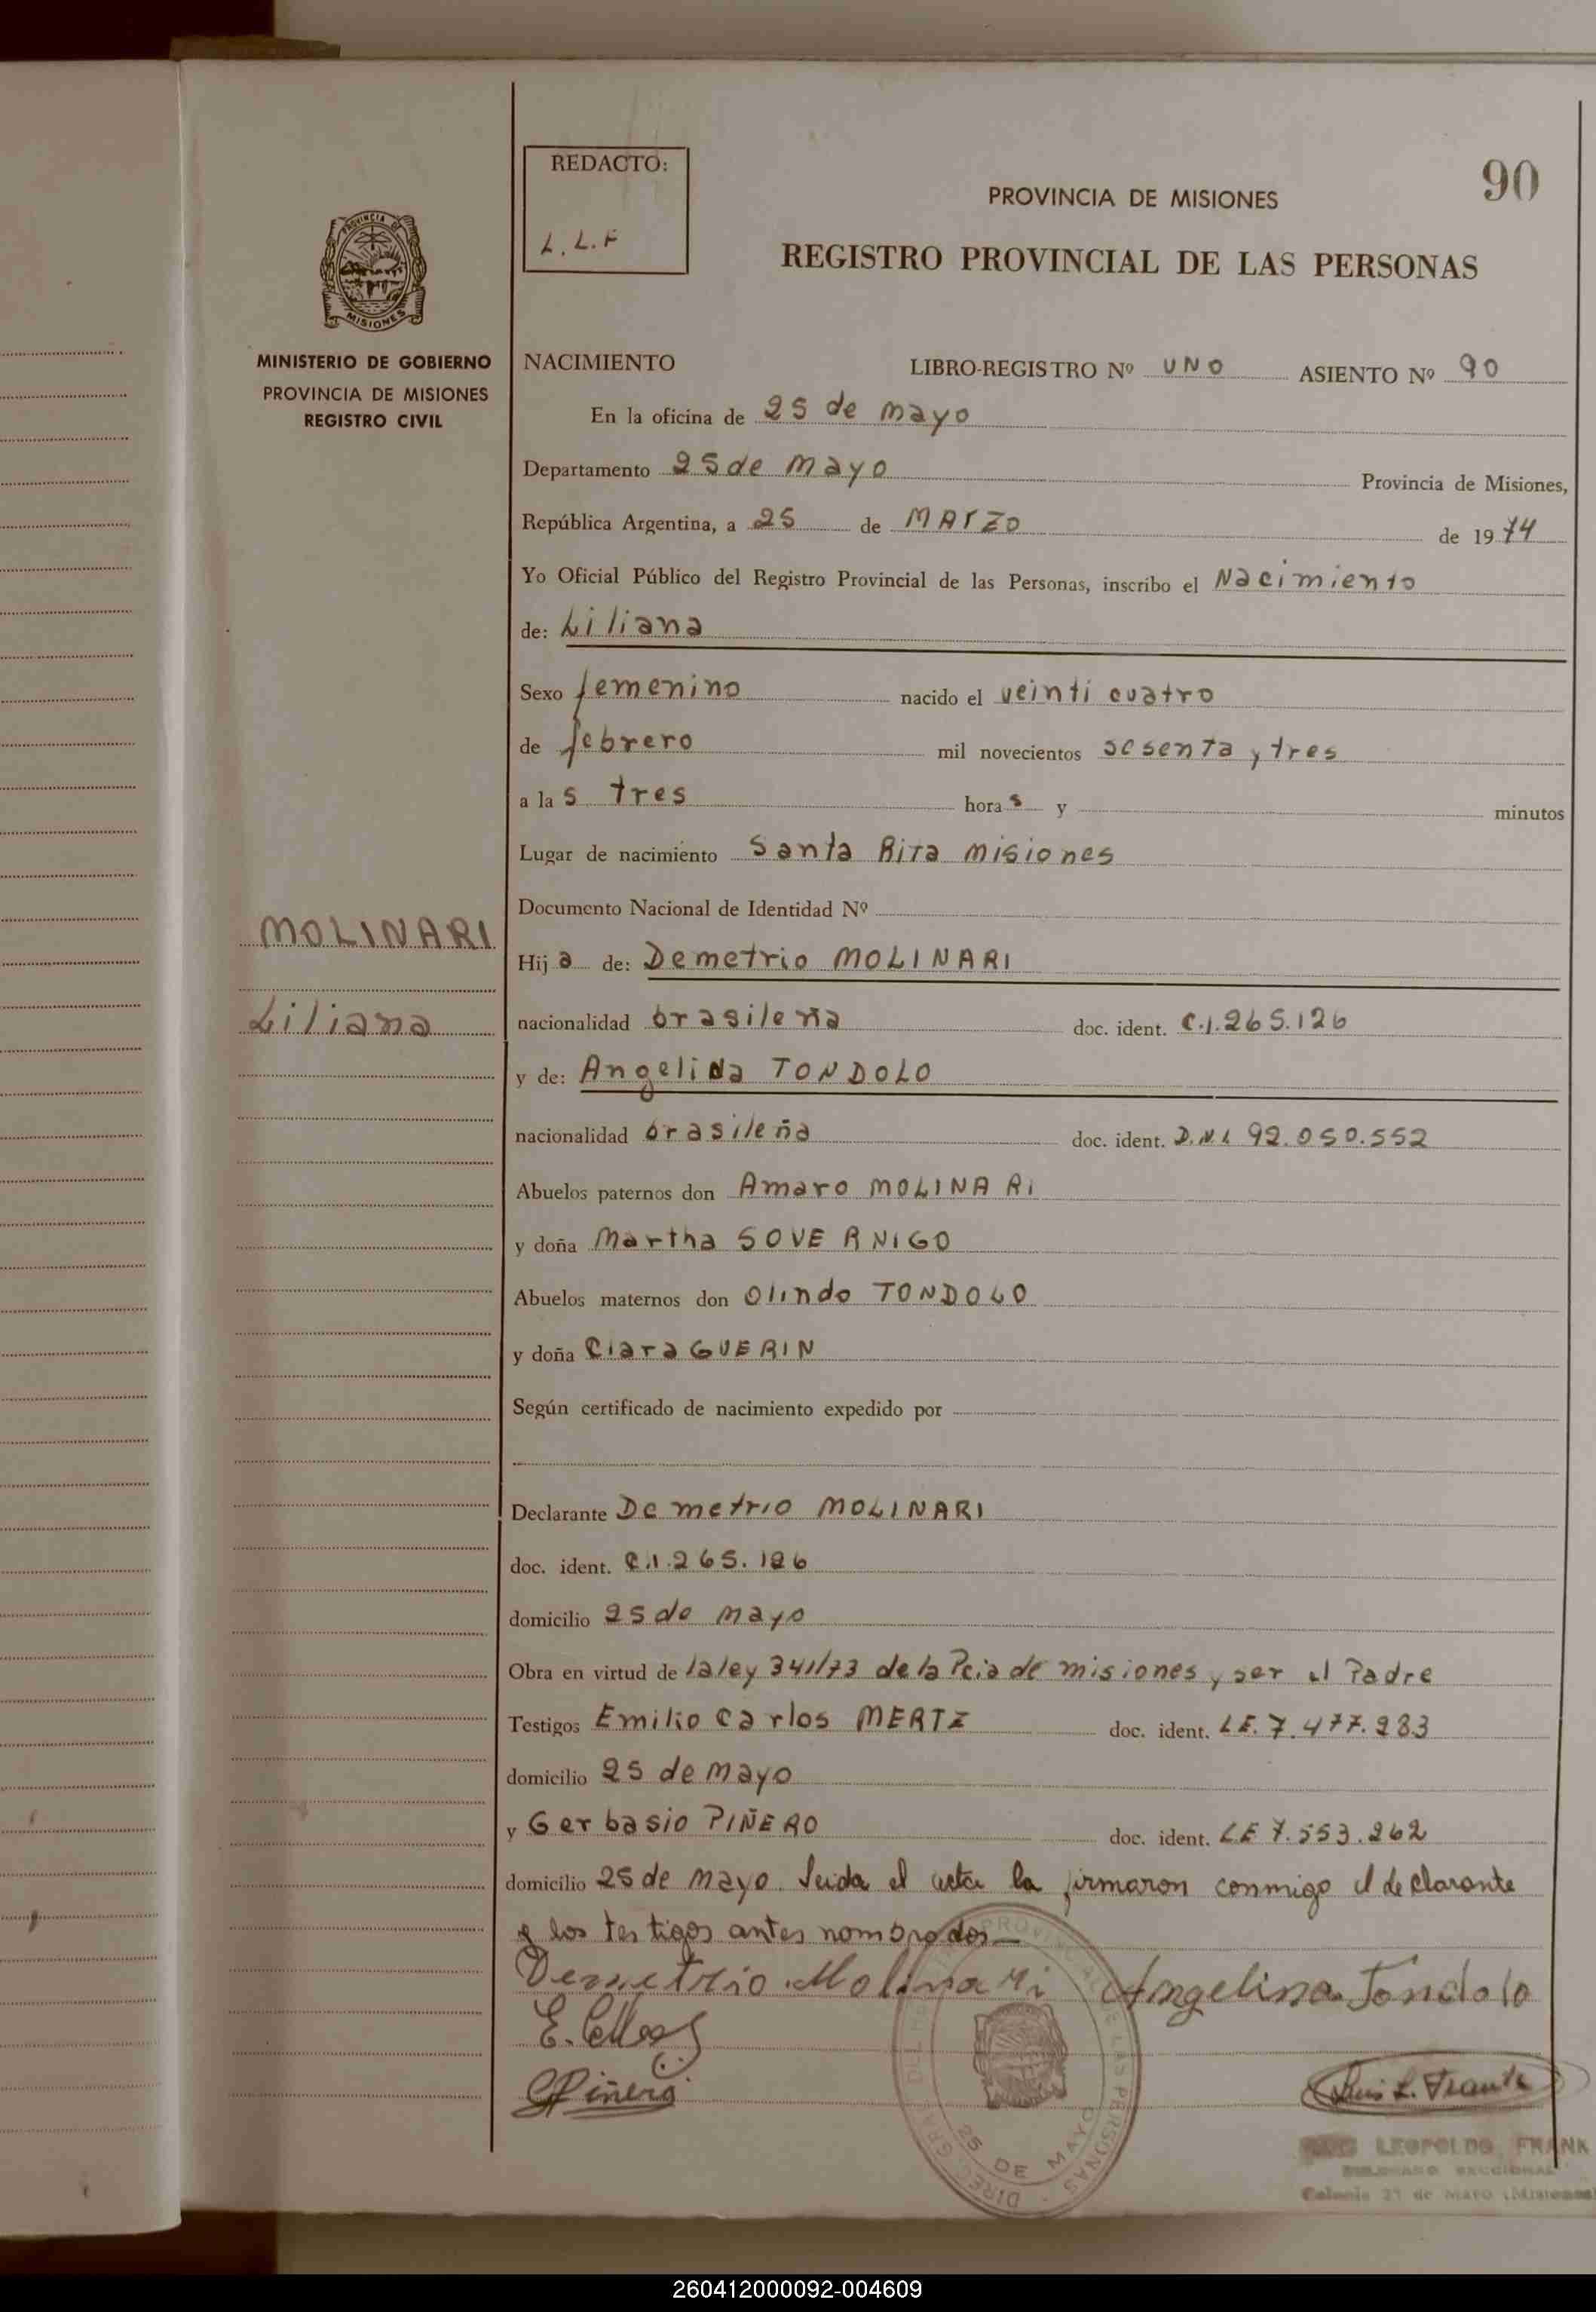 90
REDACTO:
L. L. F
PROVINCIA DE MISIONES
REGISTRO PROVINCIAL DE LAS PERSONAS
PROVINCIA DE
MISIONES
MINISTERIO DE GOBIERNO
PROVINCIA DE MISIONES
REGISTRO CIVIL
MOLINARI
Liliana
NACIMIENTO LIBRO-REGISTRO Nº UNO ASIENTO Nº 90
En la oficina de 25 de mayo
Departamento 25 de mayo Provincia de Misiones,
República Argentina, a 25 de MARZO de 1974
Yo Oficial Público del Registro Provincial de las Personas, inscribo el Nacimiento
de: Liliana
Sexo femenino nacido el veinti cuatro
de febrero mil novecientos sesenta y tres
a las tres horas y minutos
Lugar de nacimiento Santa Rita misiones
Documento Nacional de Identidad Nº
Hija de: Demetrio MOLINARI
nacionalidad brasileña doc. ident. C.I. 265.126
y de: Angelina TONDOLO
nacionalidad brasileña doc. ident. D.N.I 92.050.552
Abuelos paternos don Amaro MOLINARI
y doña Martha SOVERNIGO
Abuelos maternos don Olindo TONDOLO
y doña Clara GUERIN
Según certificado de nacimiento expedido por
Declarante Demetrio MOLINARI
doc. ident. C.I. 265.126
domicilio 25 de mayo
Obra en virtud de la ley 341/73 de la Pcia de misiones y ser el Padre
Testigos Emilio Carlos MERTZ doc. ident. LE. 7.477.283
domicilio 25 de mayo
y Gerbasio PIÑERO doc. ident. LE 7.553.262
domicilio 25 de mayo. Leida el acta la firmaron conmigo el declarante
y los testigos antes nombrados
Demetrio Molinari Angelina Tondolo
GPiñero
Luis L. Frank
LEOPOLDO FRANK
Colonia 25 de Mayo (Misiones)
PROVINCIAL DE LAS PERSONAS
25 DE MAYO
260412000092-004609